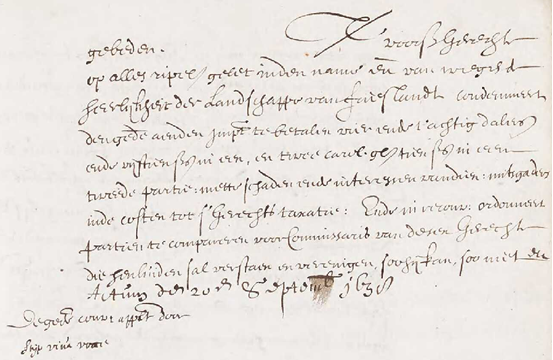 T voorsz Gerecht
gebeden.
op alles rijpel. gelet inden name ende van weegen de
heerlickheit der Landschappe van Frieslandt condemneert
den gede aenden Impt te betalen vier ende tachtig dalers
ende vijftien st in een, en twee carol. gl. tien st in een
tweede partie: mette schaden ende interessen vandien: mitsgaders
inde costen tot s'Gerechts taxatie: Ende in reconv: ordonneert
partien te compareren voor Commissaris van desen Gerecht
die henluiden sal verstaen en verenigen, soo hij kan, soo niet
Actum den 20en Septemb 163
de gede door